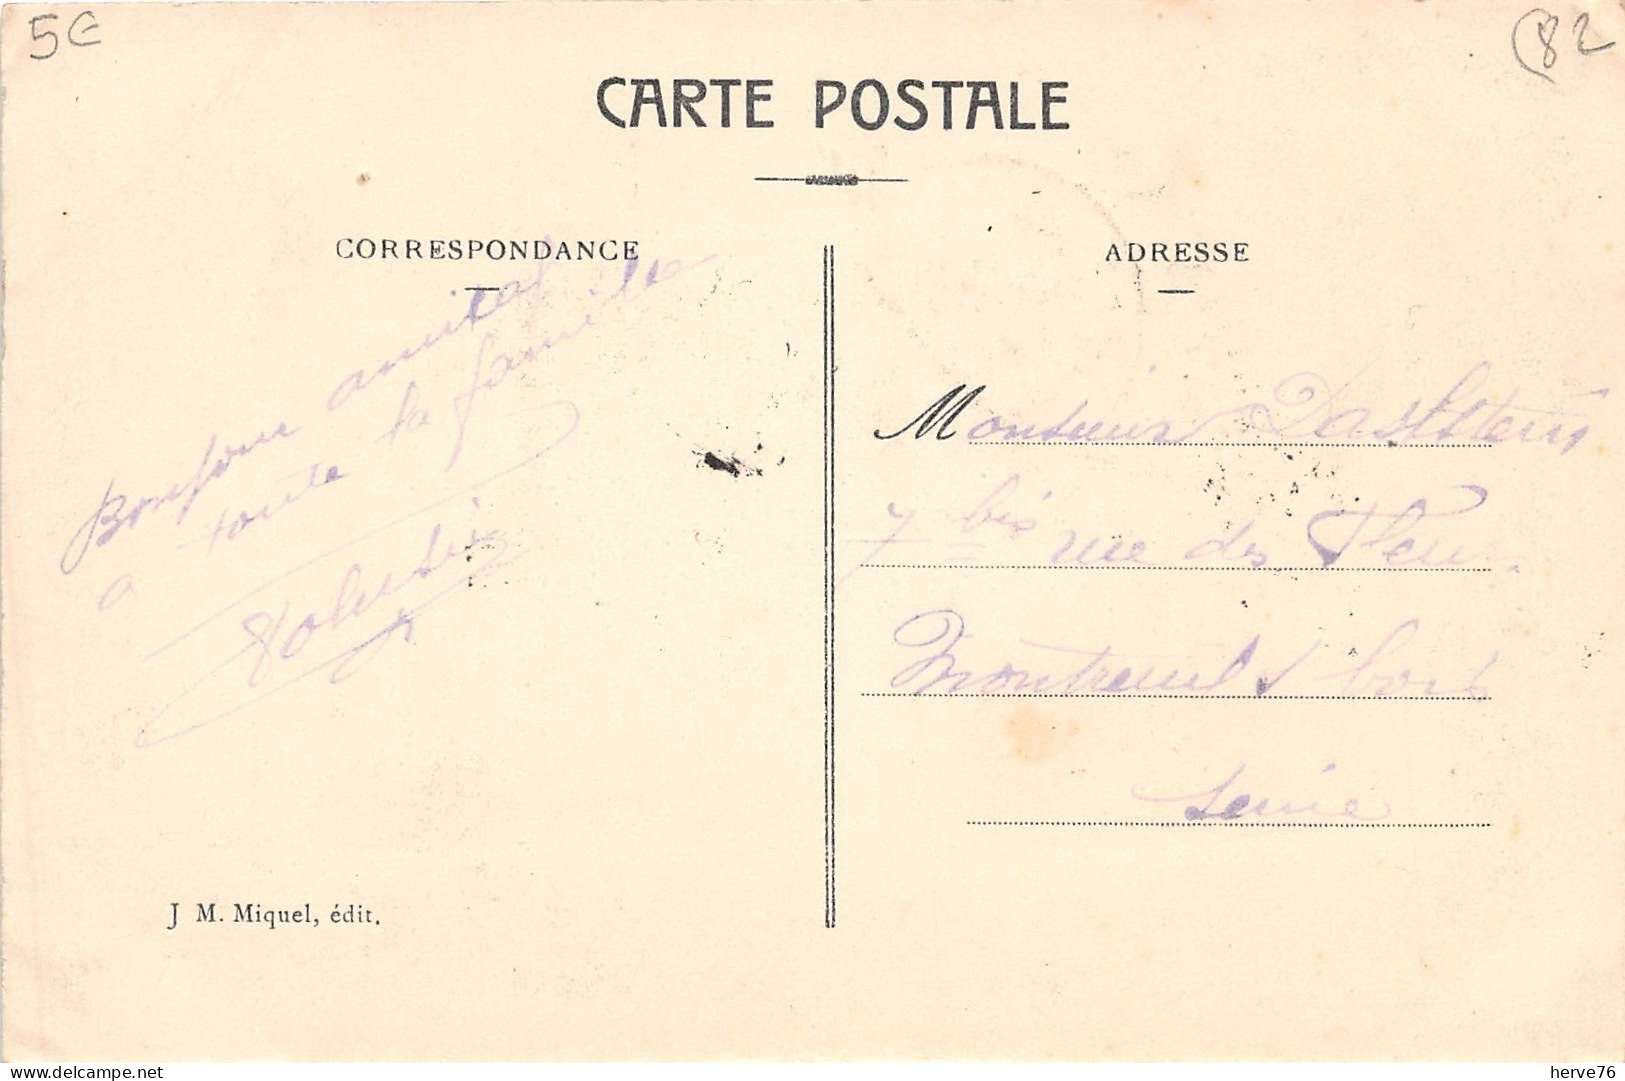 5€
82
CARTE POSTALE
CORRESPONDANCE
Bonjour amical
a toute la famille
J M. Miquel, édit.
ADRESSE
Monsieur
7 bis rue des Fleurs
Montreuil s bois
Seine
delcampe.net
herve76